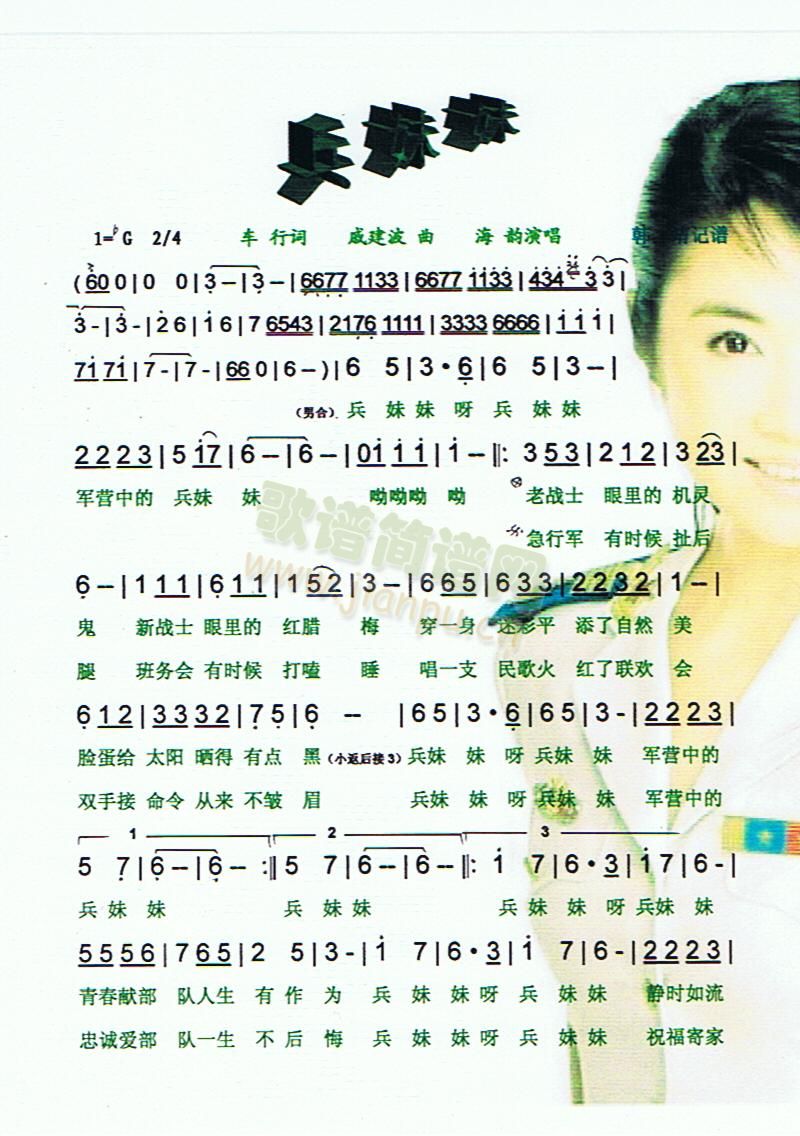 兵妹妹
1=♭G 2/4 车 行词 戚建波 曲 海 韵演唱 韩 记谱
(6 0 0 | 0 0 | 3 – | 3 – | 6677 1133 | 6677 1133 | 434 3 3 |
3 - | 3 - | 2 6 | 1 6 | 7 6543 | 2176 1111 | 3333 6666 | 1 1 1 |
71 71 | 7 - | 7 - | 66 0 | 6 – ) | 6 5 | 3 · 6 | 6 5 | 3 – |
(男合) 兵 妹 妹 呀 兵 妹 妹
2 2 2 3 | 5 17 | 6 – | 6 – | 01 1 1 | 1 – ‖: 3 5 3 | 2 1 2 | 3 23 |
军营中的 兵妹 妹 呦呦呦 呦 老战士 眼里的 机灵
急行军 有时候 扯后
6 – | 1 1 1 | 6 1 1 | 1 5 2 | 3 – | 6 6 5 | 6 3 3 | 2 2 3 2 | 1 – |
鬼 新战士 眼里的 红腊 梅 穿一身 迷彩平 添了自然 美
腿 班务会 有时候 打嗑 睡 唱一支 民歌火 红了联欢 会
6 1 2 | 3 3 3 2 | 7 5 | 6 – – | 6 5 | 3 · 6 | 6 5 | 3 - | 2 2 2 3 |
脸蛋给 太阳 晒得 有点 黑 (小返后接3) 兵妹 妹 呀 兵妹 妹 军营中的
双手接 命令 从来 不皱 眉 兵妹 妹 呀 兵妹 妹 军营中的
1 2 3
5 7 | 6 – | 6 – :‖ 5 7 | 6 – | 6 – ‖: 1 7 | 6 · 3 | 1 7 | 6 - |
兵 妹 妹 兵 妹 妹 兵 妹 妹 呀 兵妹 妹
5 5 5 6 | 7 6 5 | 2 5 | 3 - | 1 7 | 6 · 3 | 1 7 | 6 - | 2 2 2 3 |
青春献部 队人生 有 作 为 兵 妹 妹 呀 兵 妹 妹 静时如流
忠诚爱部 队一生 不 后 悔 兵 妹 妹 呀 兵 妹 妹 祝福寄家
歌谱简谱网
www.jianpu.cn